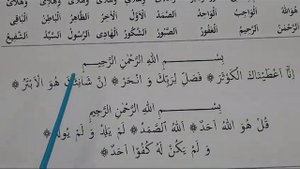 هُوَاللهُ الْوَاجِبُ الْوَاحِدُ الصَّمَدُ الْاَوَّلُ الْآخِرُ الظَّاهِرُ الْبَاطِنُ الْبَاقِى
الرَّحِيمُ الْغَفُورُ الصَّبُورُ الشَّكُورُ الْهَادِى الرَّسُولُ السَّيِّدُ الشَّفِيعُ
بِسْـــمِ اللهِ الرَّحْمٰنِ الرَّحِيمِ
اِنَّا اَعْطَيْنَاكَ الْكَوْثَرَ ❁ فَصَلِّ لِرَبِّكَ وَ انْحَرْ ❁ اِنَّ شَانِئَكَ هُوَ الْاَبْتَرُ ❁
بِسْـــمِ اللهِ الرَّحْمٰنِ الرَّحِيمِ
قُلْ هُوَ اللهُ اَحَدٌ ❁ اَللهُ الصَّمَدُ ❁ لَمْ يَلِدْ وَ لَمْ يُولَدْ ❁
وَ لَمْ يَكُنْ لَهُ كُفُوًا اَحَدٌ ❁